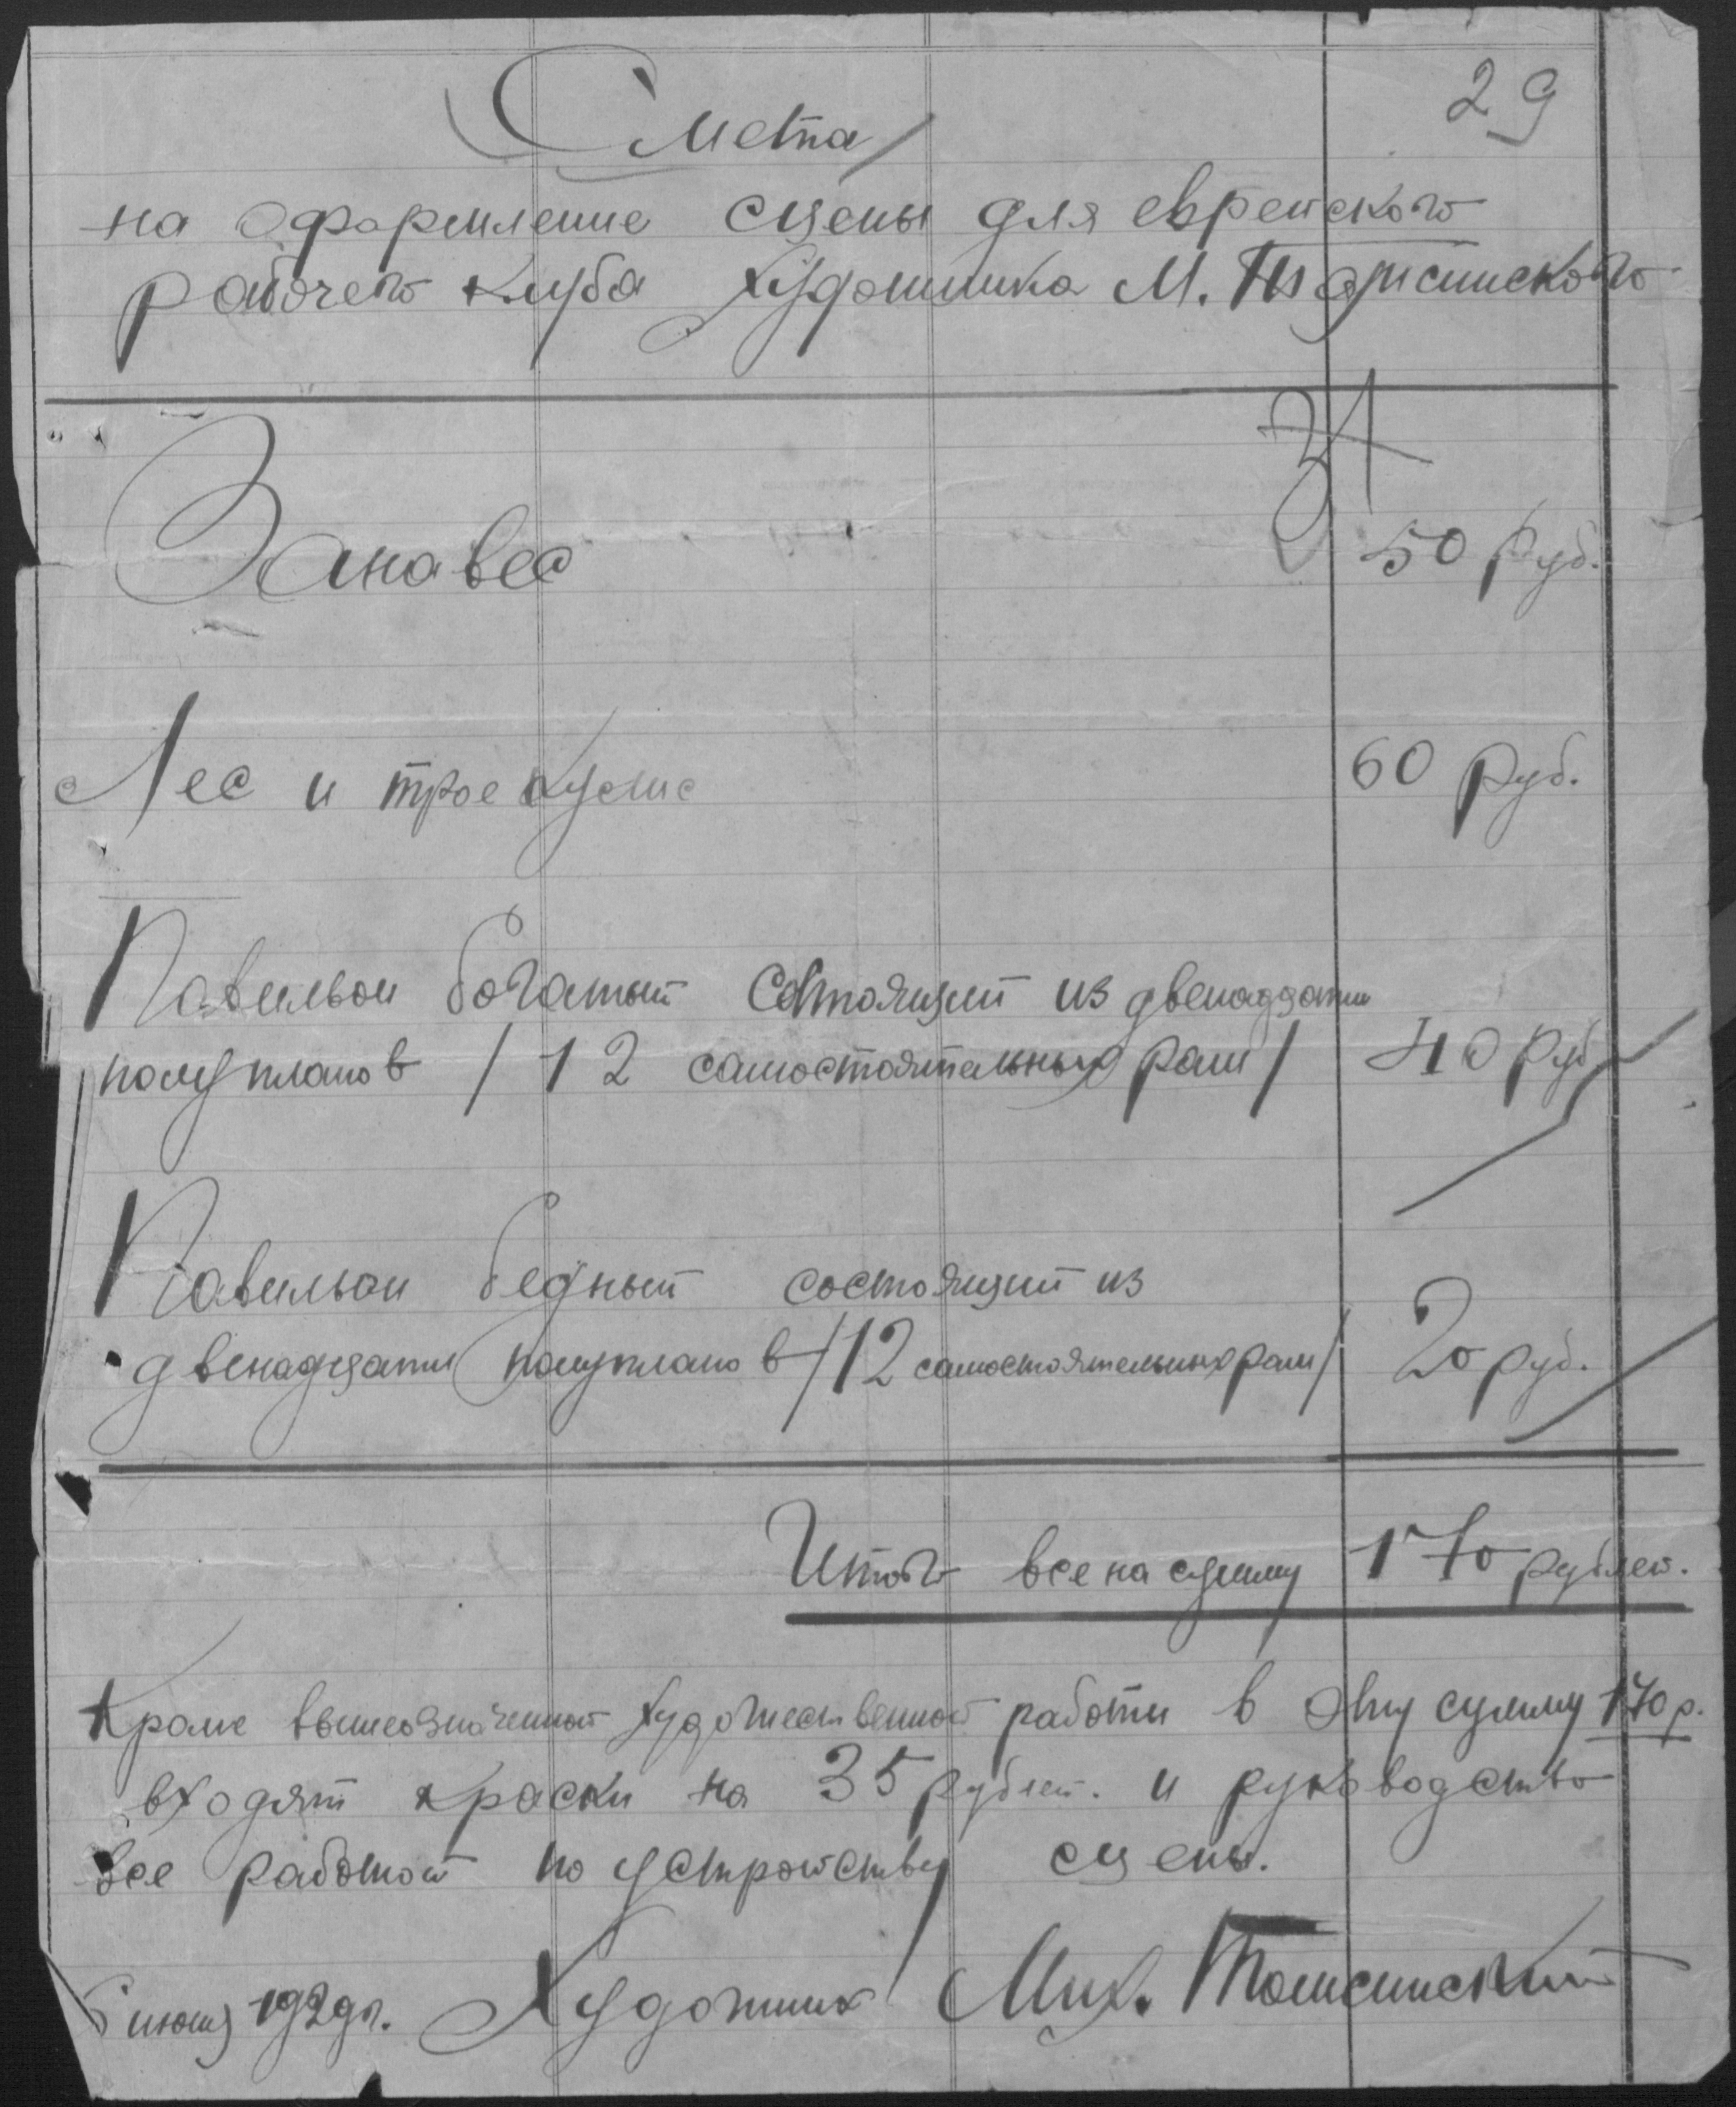 29
Смета
на оформление сцены для еврейского
рабочего клуба художника М.
Занавес 50 руб.
Лес и трое кулис 60 руб.
Павильон богатый состоящий из двенадцати
полупланов / 12 самостоятельных рам / 40 руб
Павильон бедный состоящий из
двенадцати полупланов / 12 самостоятельных рам / 20 руб.
Итого все на сумму 170 рублей.
Кроме вышеозначенной художественной работы в эту сумму 170 р.
входят краски на 35 рублей. и руководство
все работой по устройству сцены.
июня 1929 г. Художник Мих.